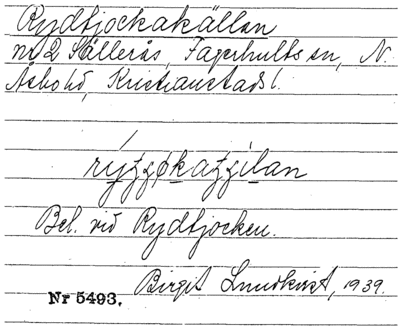 Rydtjockakällan
nr 2 Sällerås, Fagerhults sn, N.
Åsbo hd, Kristianstads l.
Bel. vid Rydtjocken.
Birgit Lundkvist, 1939.
Nr 5493.